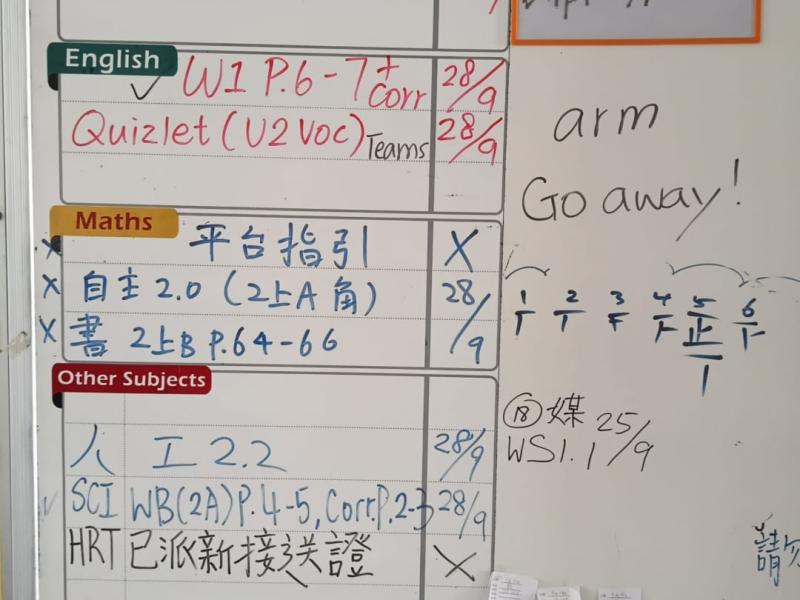 English
W1 P.6-7 + Corr 28/9
Quizlet (U2 Voc) Teams 28/9
Maths
平台指引 X
自主2.0 (2上A 角) 28/9
書 2上B P.64-66
Other Subjects
人 工 2.2 28/9
SCI WB(2A) P.4-5, Corr.P.2-3 28/9
HRT 已派新接送證 X
arm
Go away!
1 2 3 4 5 6
正
⑱ 媒 25/9
WS1.1
請勿